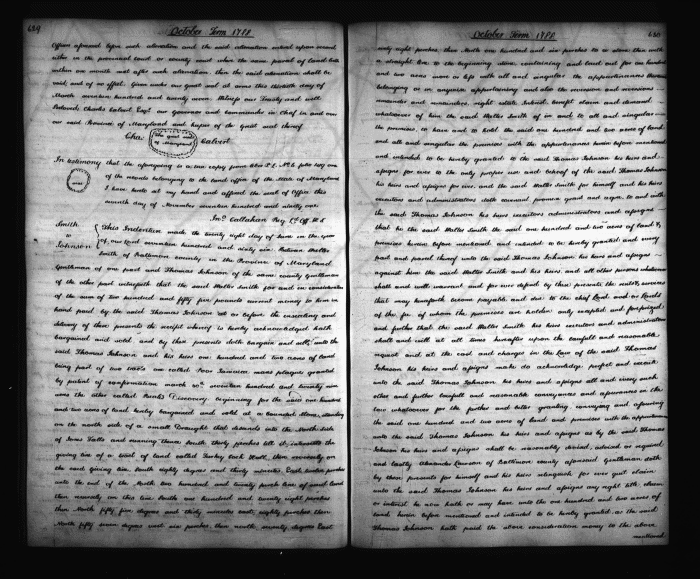 629
October Term 1788
Officer aforesaid before such alienation and the said alienation entered upon record
either in the provincial court or county court where the same parcel of land lieth
within one month next after such alienation then the said alienation shall be
void and of no effect. Given under our great seal at arms this thirtieth day of
March seventeen hundred and twenty seven. Witness our Trusty and well
Beloved Charles Calvert Esqr. our governor and commander in chief in and over
our said Province of Maryland and keeper of the great seal thereof
Cha: The great seal of Maryland Calvert
In testimony that the aforegoing is a true copy from Liber
of the records belonging to the land office of the State of Maryland
I have hereto set my hand and affixed the seal of Office this
seal
day of November seventeen hundred and ninety one
Jno. Callahan Reg Ld. Off. W. S
Smith
to
Johnson
This Indenture made the twenty eight day of June in the year
of our lord seventeen hundred and sixty six Between Walter
Smith of Baltimore county in the Province of Maryland
Gentleman of one part and Thomas Johnson of the same county gentleman
of the other part witnesseth that the said Walter Smith for and in consideration
of the sum of two hundred and fifty five pounds current money to him in
hand paid by the said Thomas Johnson at or before the ensealing and
delivery of these presents the receipt whereof is hereby acknowledged hath
bargained and sold and by these presents doth bargain and sell unto the
said Thomas Johnson and his heirs one hundred and two acres of land
being part of two tracts one called Poor Jamaica mans plague granted
by patent of confirmation march seventeen hundred and twenty nine
acres the other called Discovery beginning for the said one hundred
and two acres of land hereby bargained and sold at a bounded stone, standing
on the north side of a small Draught that descends into the North side
of Jones Falls and running thence South thirty perches till it intersects the
giving line of a tract of land called Turkey Cock Hall, then reversely on
the said giving line South eighty degrees and thirty minutes East perches
unto the end of the North one hundred and twenty perch line of said land
then reversely on this line South one hundred and twenty eight perches
then North fifty five degrees and thirty minutes east, eighty perches then
North fifty seven degrees west six perches, then north seventy degrees East
October Term 1788
630
sixty eight perches, then North one hundred and six perches to a stone then with
a straight line to the beginning stone, containing and laid out for one hundred
and two acres more or less with all and singular the appurtenances thereunto
belonging or in anywise appertaining and also the reversion and reversions
remainder and remainders, right estate Interest benefit claim and demand
whatsoever of him the said Walter Smith of in and to all and singular
the premises, to have and to hold the said one hundred and two acres of land
and all and singular the premises with the appurtenances herein before mentioned
and intended to be hereby granted to the said Thomas Johnson his heirs and
assigns for ever to the only proper use and behoof of the said Thomas Johnson
his heirs and assigns for ever, and the said Walter Smith for himself and his heirs
executors and administrators doth covenant promise grant and agree to and with
the said Thomas Johnson his heirs executors administrators and assigns
that he the said Walter Smith the said one hundred and two acres of land &
premises herein before mentioned, and intended to be hereby granted and every
part and parcel thereof unto the said Thomas Johnson his heirs and assigns
against him the said Walter Smith and his heirs, and all other persons whatsoever
shall and will warrant and for ever defend by these presents the rents & services
that may hereforth become payable and due to the chief Lord and or Lords
of the fee of whom the premises are holden only excepted and foreprized,
and further that the said Walter Smith his heirs executors and administrators
shall and will at all times hereafter upon the lawfull and reasonable
request and at the cost and charges in the law of the said Thomas
Johnson his heirs and assigns make do acknowledge, perfect and execute
unto the said Thomas Johnson, his heirs and assigns all and every such
other and further lawfull and reasonable conveyances and assurances in the
law whatsoever for the further and better granting, conveying and assuring
the said one hundred and two acres of land and premises with the appurtenances
unto the said Thomas Johnson his heirs and assigns as by the said Thomas
Johnson his heirs and assigns shall be reasonably devised, advised or required
and lastly Alexander Lawson of Baltimore county aforesaid gentleman doth
by these presents for himself and his heirs relinquish for ever quit claim
unto the said Thomas Johnson his heirs and assigns any right title claim
or interest he now hath or may have unto the one hundred and two acres of
land herein before mentioned and intended to be hereby granted, as the said
Thomas Johnson hath paid the above consideration money to the above
mentioned